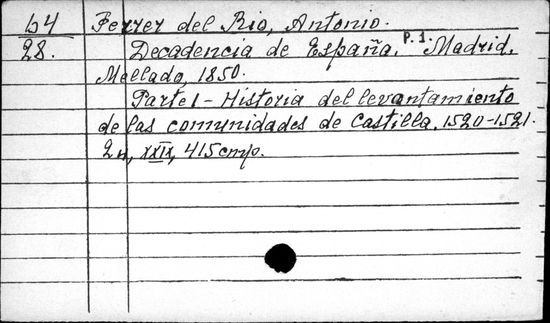 54 Ferrer del Rio, Antonio.
28. Decadencia de España. P.1. Madrid,
Mellado, 1850.
Parte I - Historia del levantamiento
de las comunidades de Castilla. 1520-1521.
2 н, XXIX, 415 стр.